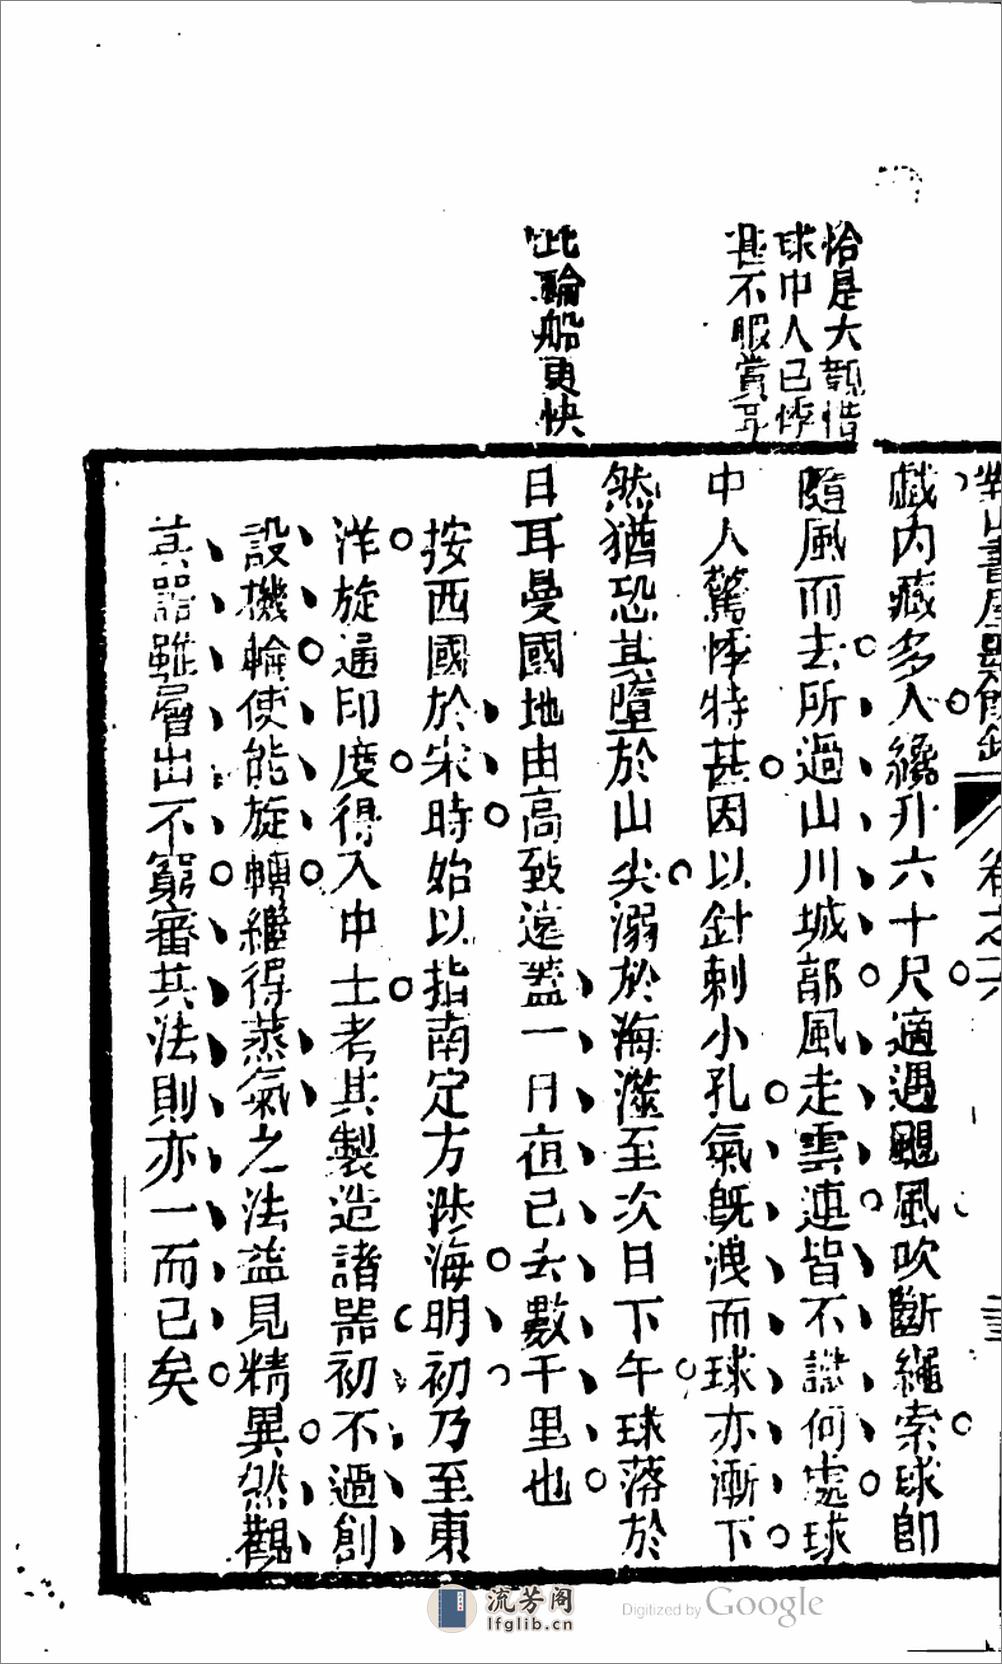 恰是大觀惜
球中人已悸
甚不暇賞耳
此輪船更快
對山書屋墨餘錄 卷之六 三
戲內藏多人纔升六十尺適遇颶風吹斷繩索球卽
隨風而去所過山川城郭風走雲連皆不識何處球
中人驚悸特甚因以針刺小孔氣旣洩而球亦漸下
然猶恐其墮於山尖溺於海滋至次日下午球落於
日耳曼國地由高致遠蓋一日夜已去數千里也
按西國於宋時始以指南定方涉海明初乃至東
洋旋通印度得入中土考其製造諸器初不過創
設機輪使能旋轉繼得蒸氣之法益見精異然觀
其器雖層出不窮審其法則亦一而已矣
流芳阁
lfglib.cn
Digitized by Google